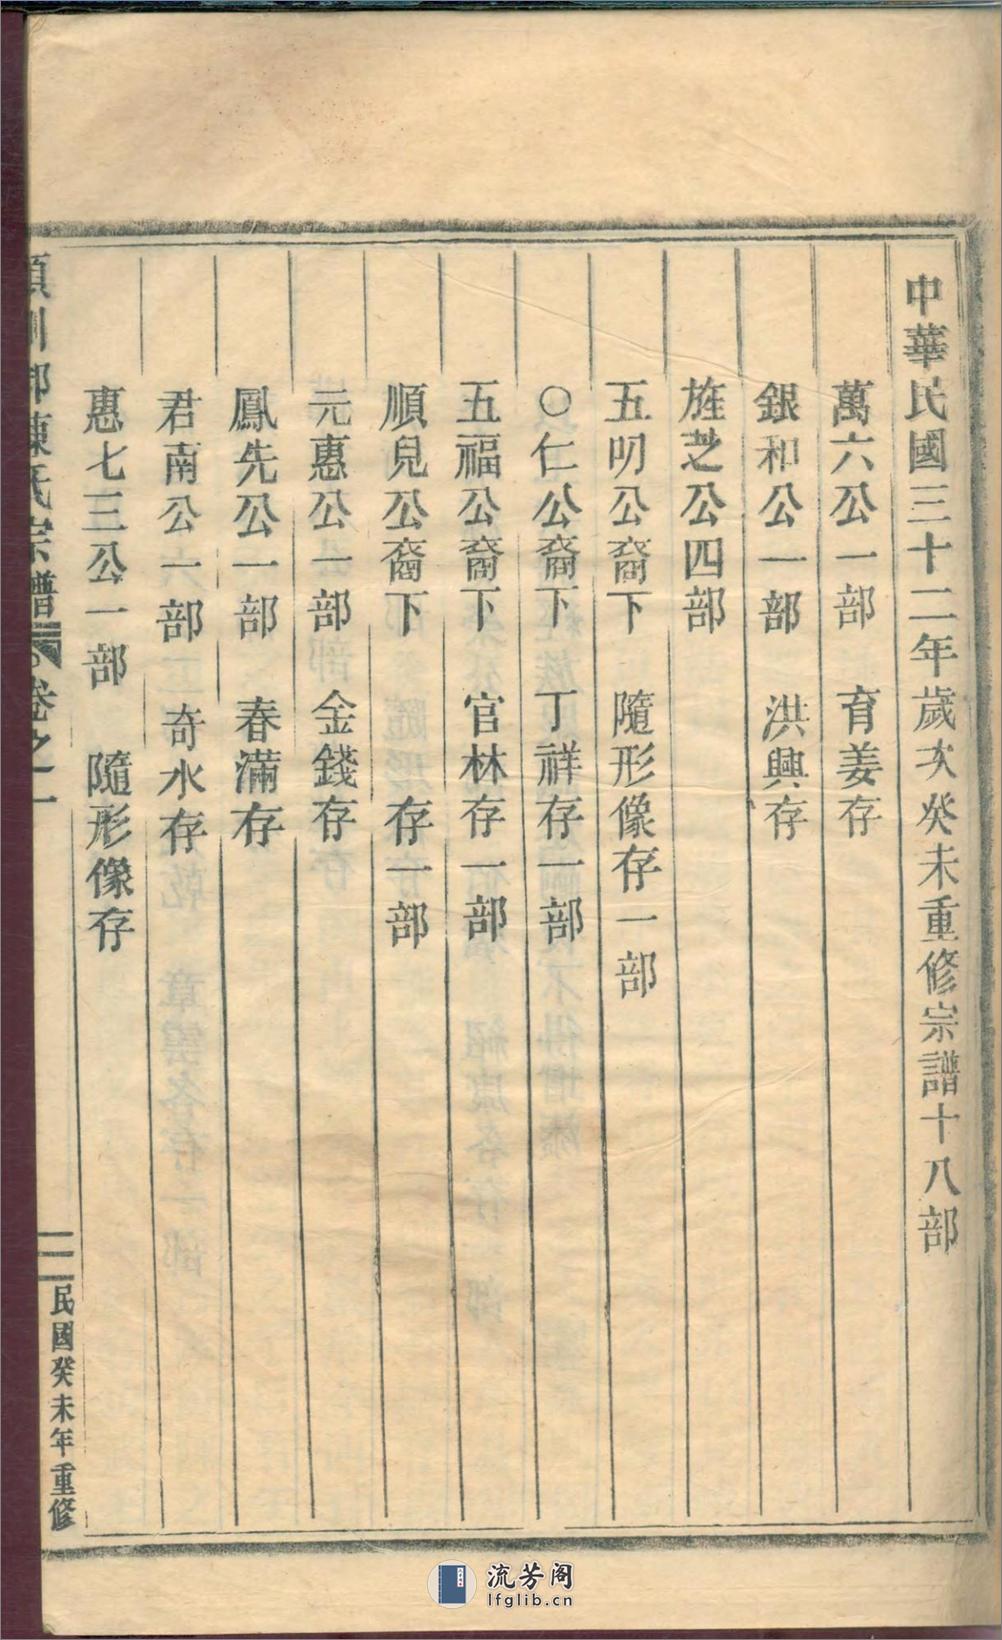 中華民國三十二年歲次癸未重修宗譜十八部
萬六公一部 育姜存
銀和公一部 洪興存
旌芝公四部
五叨公裔下 隨形像存一部
○仁公裔下 丁祥存一部
五福公裔下 官林存一部
順兒公裔下 存一部
元惠公一部 金錢存
鳳先公一部 春滿存
君南公一部 奇水存
惠七三公一部 隨形像存
郡陳氏宗譜 卷之一 二 民國癸未年重修
流芳阁
lfglib.cn